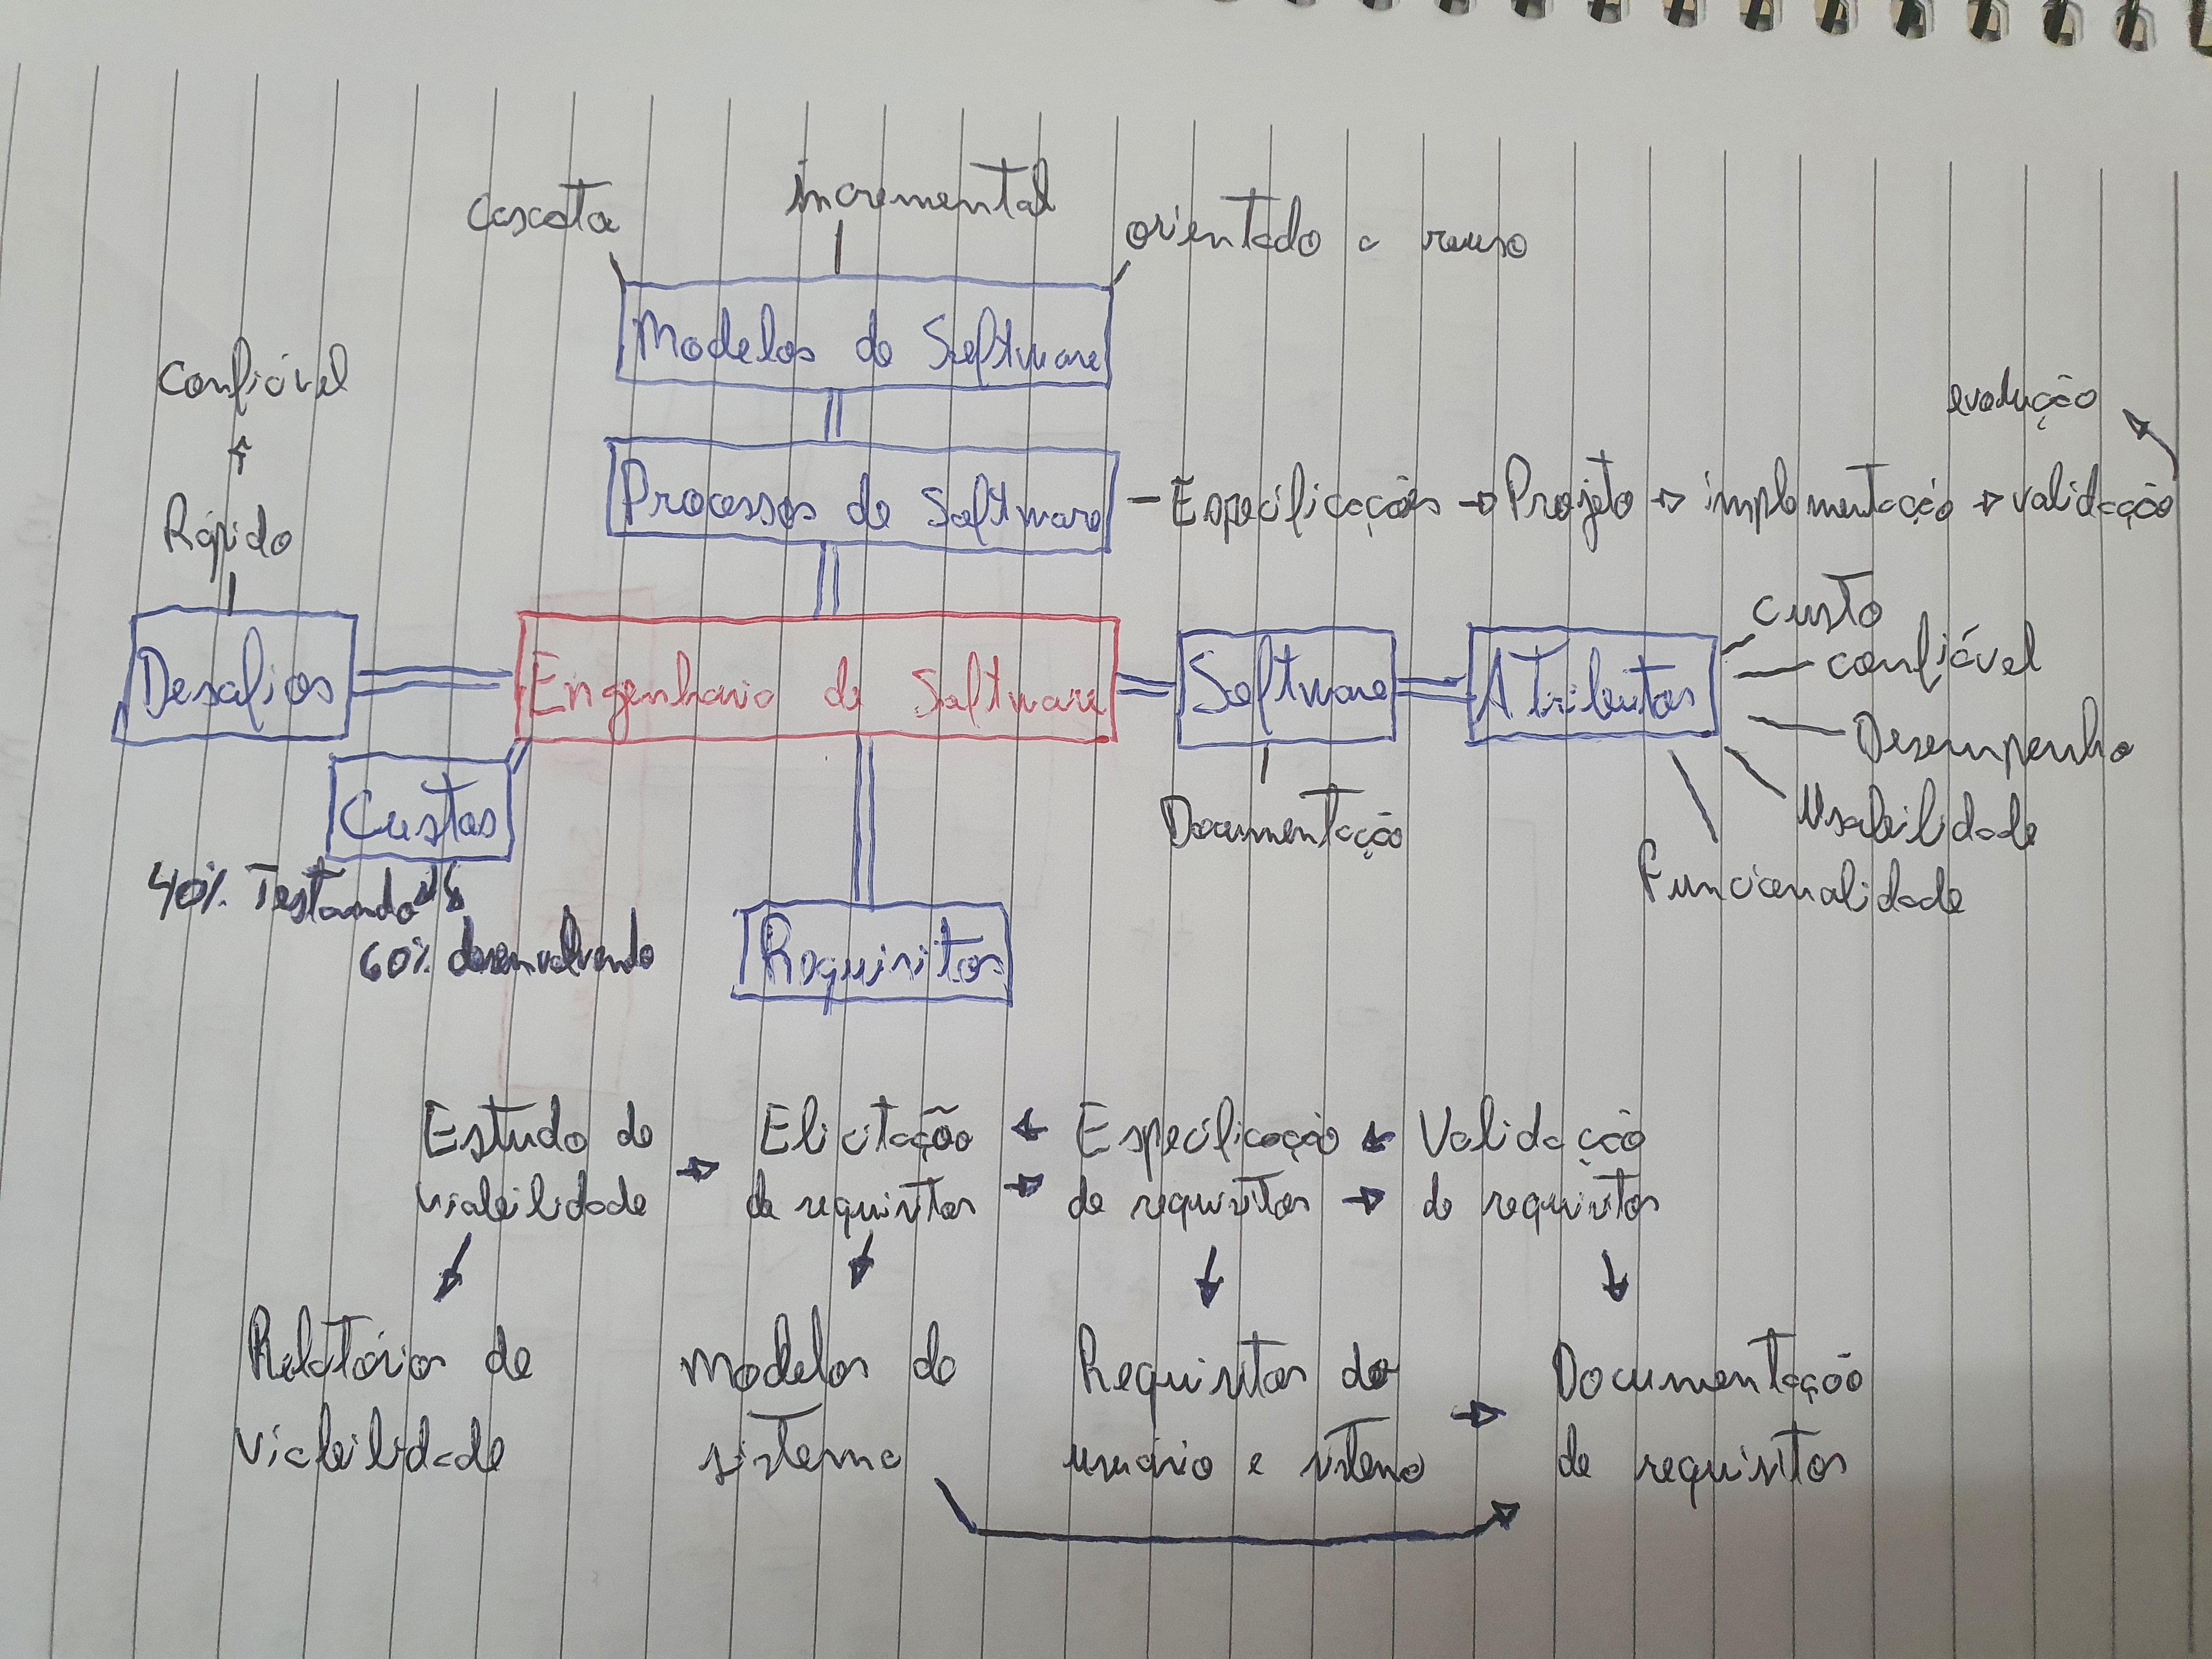 cascata
incremental
orientado a reuso
Modelos de Software
Confiável
evolução
Processos de Software
Especificações → Projeto → implementação → validação
Rápido
Desafios
Engenharia de Software
Software
Atributos
custo
confiável
Desempenho
Usabilidade
Funcionalidade
Custos
Documentação
40% Testando
60% desenvolvendo
Requisitos
Estudo de
viabilidade
Elicitação
de requisitos
Especificação
de requisitos
Validação
de requisitos
Relatórios de
viabilidade
Modelos de
sistema
Requisitos de
usuário e sistema
Documentação
de requisitos